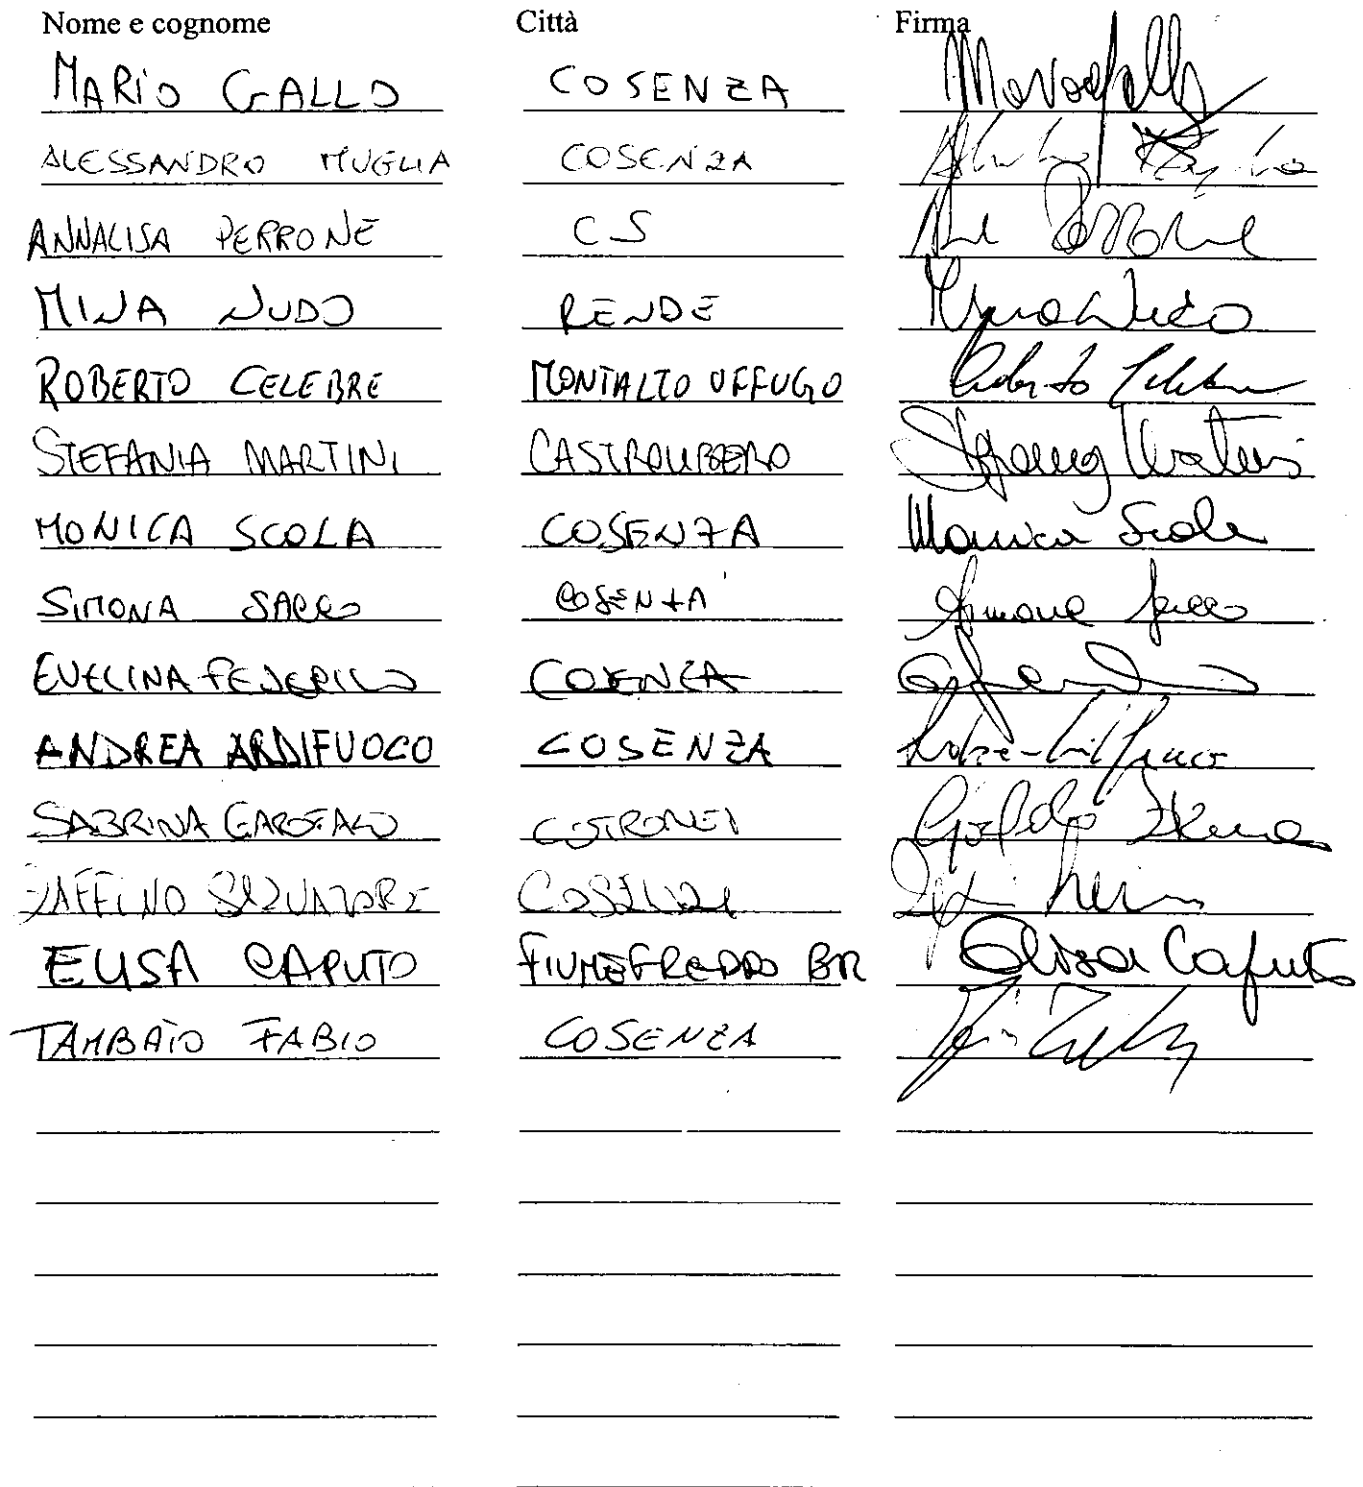 Nome e cognome Città Firma
MARIO GALLO COSENZA Mario Gallo
ALESSANDRO MUGLIA COSENZA
ANNALISA PERRONE CS Perrone
MINA NUDO RENDE Mina Nudo
ROBERTO CELEBRE MONTALTO UFFUGO Roberto Celebre
STEFANIA MARTINI CASTROLIBERO Stefania Martini
MONICA SCOLA COSENZA Monica Scola
SIMONA SACCO COSENZA Simona Sacco
EVELINA FEDERICO COSENZA
ANDREA ARDIFUOCO COSENZA
SABRINA GAROFALO COTRONEI
ZAFFINO SALVATORE COSENZA
ELISA CAPUTO FIUMEFREDDO BR Elisa Caputo
TAMBATO FABIO COSENZA